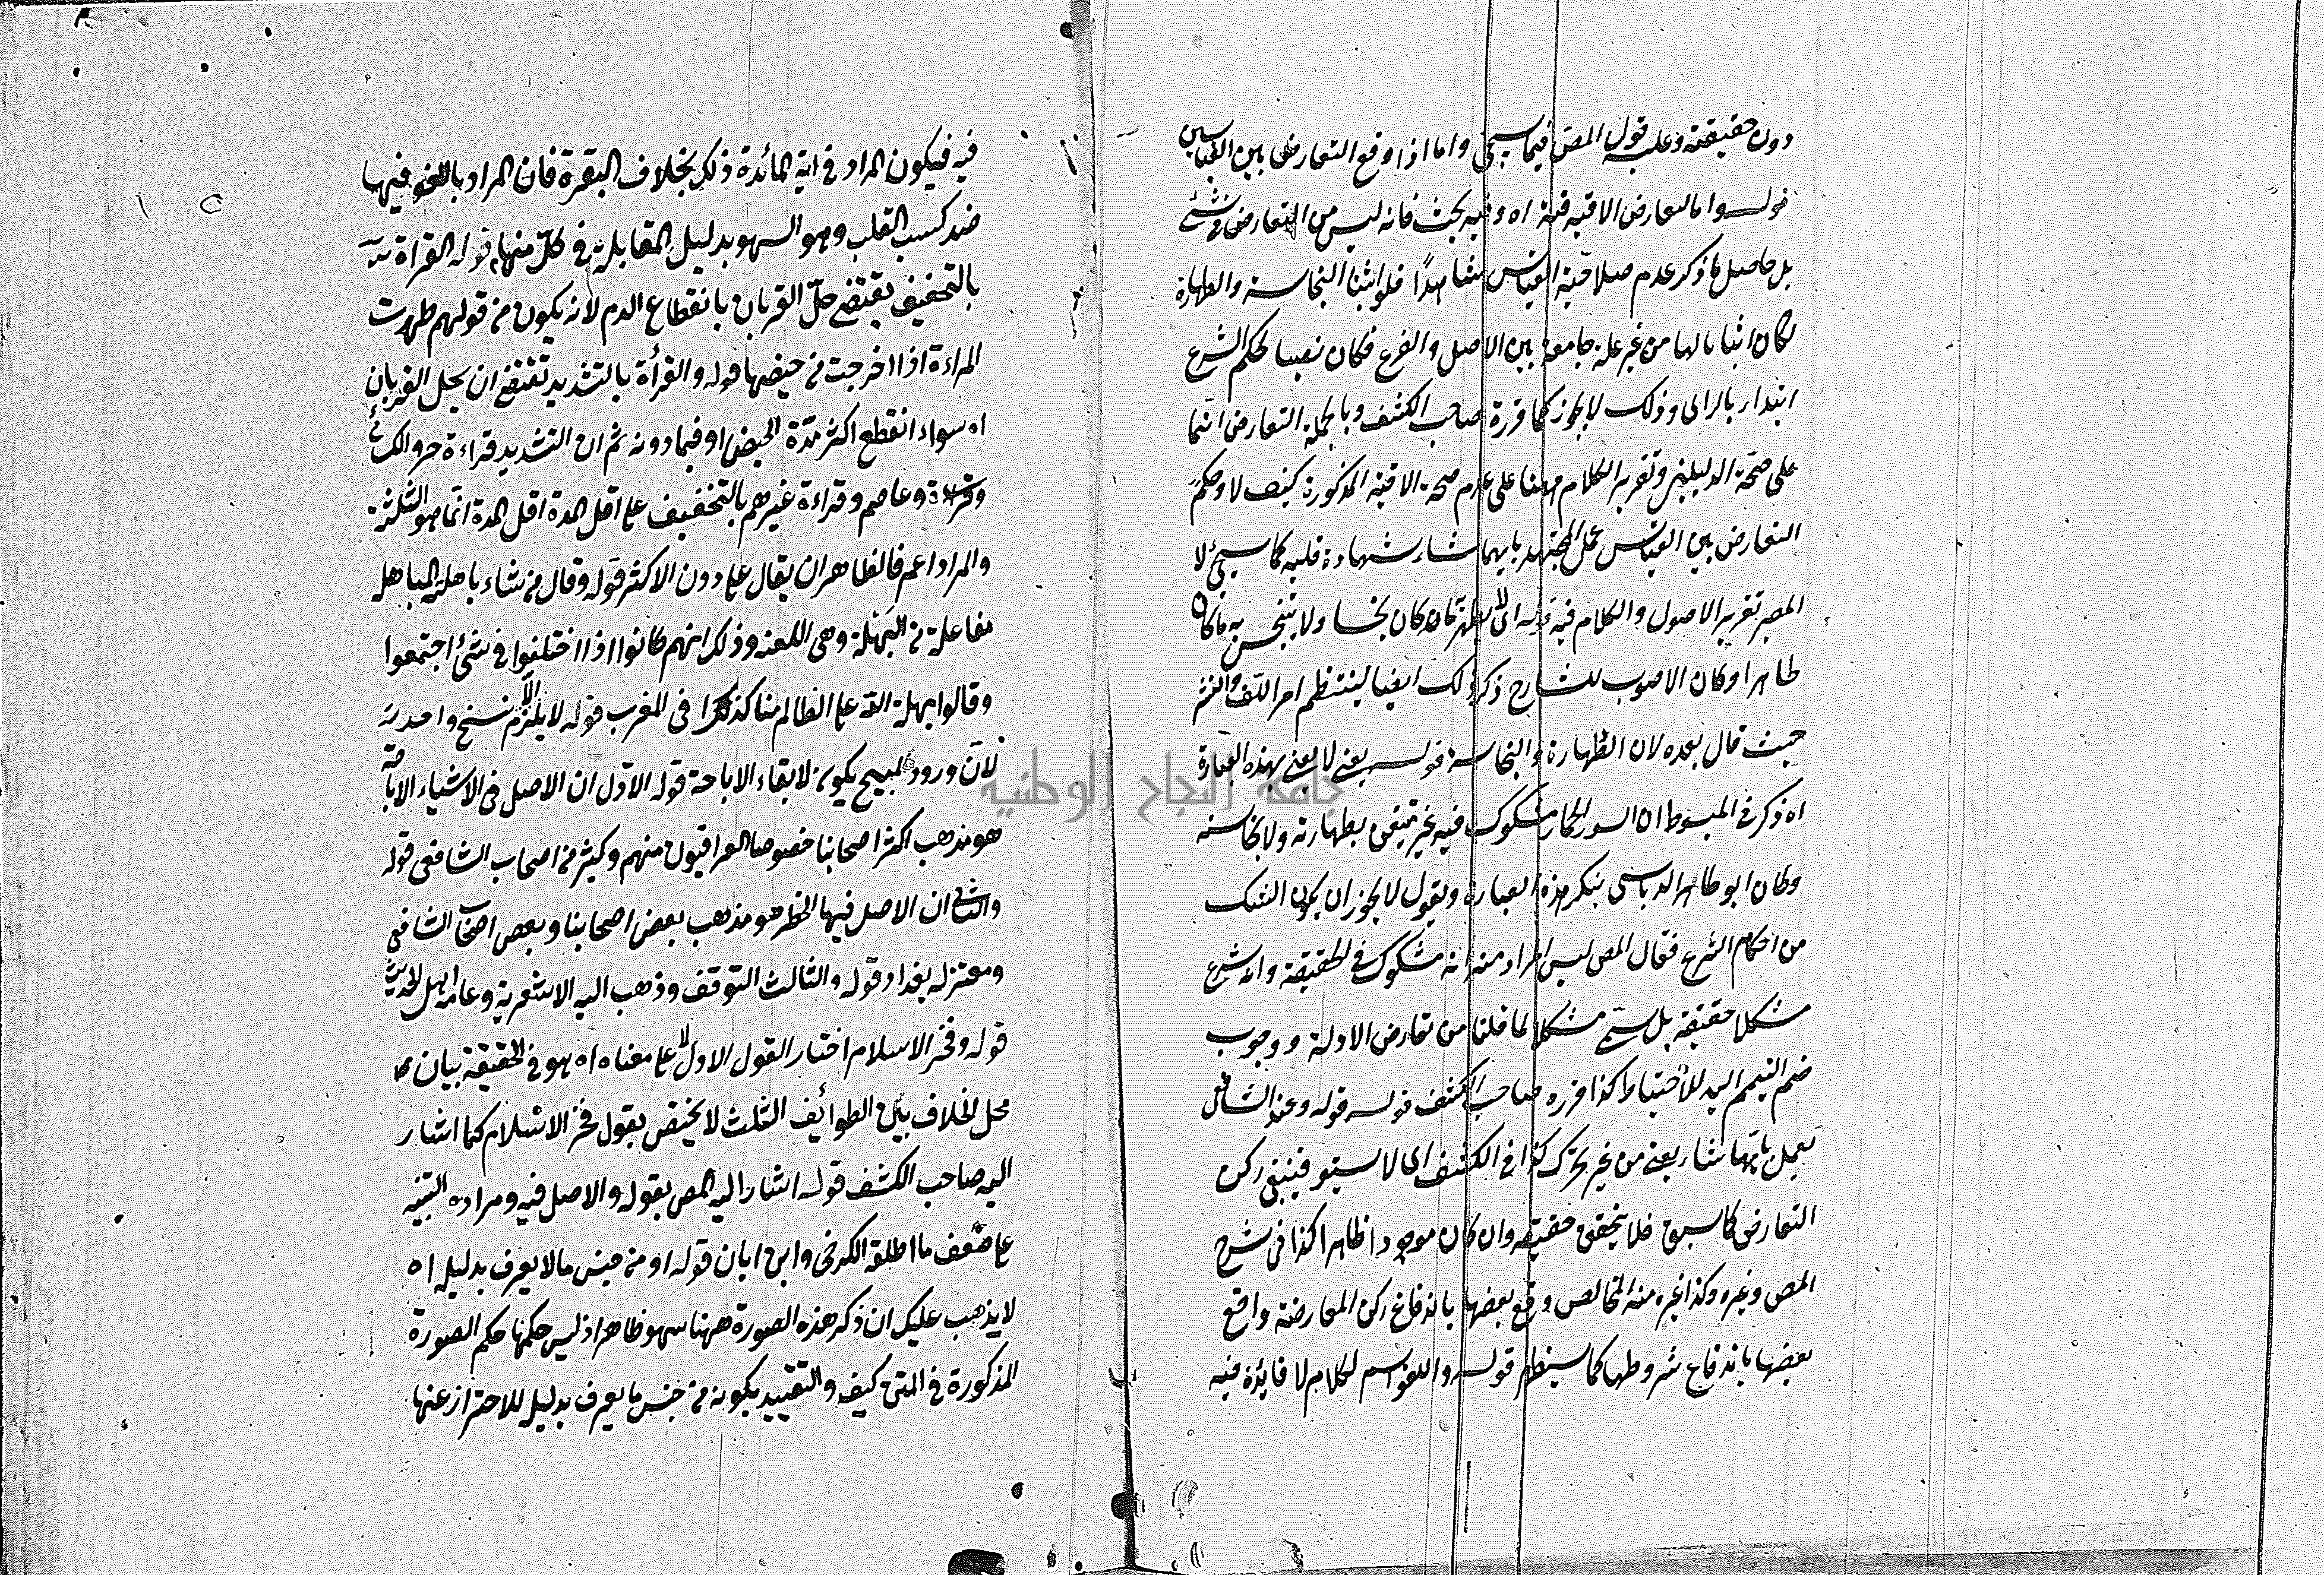 دون حقيقته وعليه قول المص فيما سيجئ واما اذا وقع التعارض بين القياسين
قوله واما تعارض الاقيسة فيه اه وفيه بحث فانه ليس من التعارض في شئ
بل حاصل ما ذكر عدم صلاحية القياس شاهدًا فلو اثبتنا النجاسة والطهارة
لكان اثباتا لها من غير علة جامعة بين الاصل والفرع فكان نصبا لحكم الشرع
ابتداء بالراى وذلك لا يجوز كما قرره صاحب الكشف وبالجملة التعارض انما
على صحة الدليلين وتقرير الكلام ههنا على عدم صحة الاقيسة المذكورة كيف لا وحكم
التعارض بين القياس عمل المجتهد بايهما شاء بشهادة قلبه كما سيجئ لا
المص تقرير الاصول والكلام فيه قوله اى لا يطهر ما كان نجسا ولا يتنجس به ما كان
طاهرا وكان الاصوب للشارح ذكر ذلك ايضا لينتظم امر اللف والنشر
حيث قال بعده لان الطهارة والنجاسة قوله يعنى لا يعنى بهذه العبارة
اه ذكر في المبسوط ان السور الحمار مشكوك فيه غير متيقن بطهارته ولا نجاسته
وكان ابو طاهر الدباس ينكر هذه العبارة ويقول لا يجوز ان يكون الشك
من احكام الشرع فقال المص ليس المراد منه انه مشكوك في الحقيقة وانه شرع
مشكلا حقيقة بل سمى مشكلا لما قلنا من تعارض الادلة ووجوب
ضم التيمم اليه للاحتياط كذا قرره صاحب الكشف قوله قوله وعند الشافعى
يعمل بايهما شاء يعنى من غير تحرك كذا في الكشف اى لا يستو فينبغى ركن
التعارض كما سبق فلا يتحقق حقيقة وان كان موجودا ظاهرا كذا في شرح
المص وغيره وكذا غيره منه المخالص وقع بعضها باندفاع ركن المعارضة واقع
بعضها باندفاع شروطها كما سينظم قوله واللغو اسم لكلام لا فائدة فيه
فيه فيكون المراد في اية المائدة ذلك بخلاف البقرة فان المراد باللغو فيها
ضد كسب القلب وهو السهو بدليل المقابلة في كل منهما قوله القراة
بالتخفيف يقتضى حلّ القربان بانقطاع الدم لانه يكون من قولهم طهرت
المراءة اذا خرجت من حيضها قوله والقرأة بالتشديد تقتضى ان يحل القربان
اه سواء انقطع اكثر مدّة الحيض او فيما دونه ثم ان التشديد قراءة حمزه والكسائى
وعاصم وقراءة غيرهم بالتخفيف على اقل المدة اقل المدة انما هو الثلثة
والمراد اعم فالظاهر ان يقال على دون الاكثر قوله وقال من شاء باهلته المباهلة
مفاعلة من البهلة وهى اللعنة وذلك انهم كانوا اذا اختلفوا في شئ اجتمعوا
وقالوا بهلة الله على الظالم منا كذا في المغرب قوله لا يلزم الا نسخ واحد
لانّ ورود المبيح يكون لابقاء الاباحة قوله الاوّل ان الاصل في الاشياء الاباحة
هو مذهب اكثر اصحابنا خصوصا العراقيون منهم وكثير من اصحاب الشافعى قوله
والثانى ان الاصل فيها الحظر هو مذهب بعض اصحابنا وبعض اصحاب الشافعى
ومعتزلة بغداد قوله والثالث التوقف وذهب اليه الاشعرية وعامة اهل الحديث
قوله وفخر الاسلام اختار القول الاول لا على معناه اه هو في الحقيقة بيان
محل الخلاف بين الطوائف الثلث لا يختص بقول فخر الاسلام كما اشار
اليه صاحب الكشف قوله اشار اليه المص بقوله والاصل فيه ومراده التنبيه
على ضعف ما اطلقه الكرخى وابن ابان قوله او من جنس ما لا يعرف بدليله اه
لا يذهب عليك ان ذكر هذه الصورة ههنا سهو ظاهر اذ ليس حكمها حكم الصورة
المذكورة في المتن كيف والتقييد بكونه من جنس ما يعرف بدليل للاحتراز عنها
جامعة النجاح الوطنية